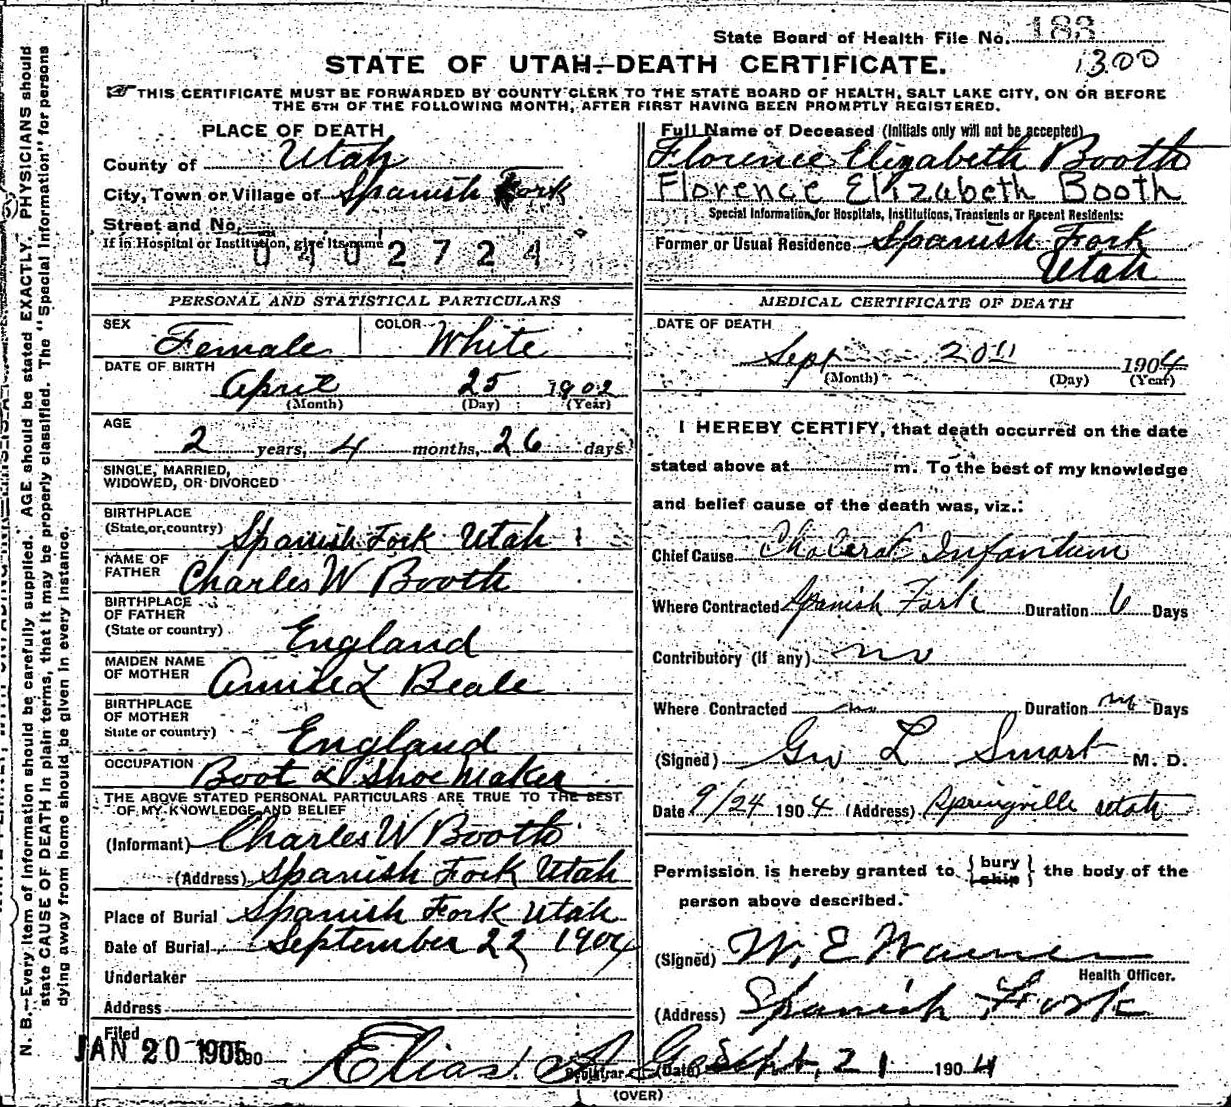 State Board of Health File No. 183
1300
STATE OF UTAH—DEATH CERTIFICATE.
THIS CERTIFICATE MUST BE FORWARDED BY COUNTY CLERK TO THE STATE BOARD OF HEALTH, SALT LAKE CITY, ON OR BEFORE
THE 5TH OF THE FOLLOWING MONTH, AFTER FIRST HAVING BEEN PROMPTLY REGISTERED.
PLACE OF DEATH
County of Utah
City, Town or Village of Spanish Fork
Street and No.
If in Hospital or Institution, give its name
0402724
Full Name of Deceased (Initials only will not be accepted)
Florence Elizabeth Booth
Florence Elizabeth Booth
Special Information for Hospitals, Institutions, Transients or Recent Residents:
Former or Usual Residence Spanish Fork
Utah
PERSONAL AND STATISTICAL PARTICULARS
SEX Female COLOR White
DATE OF BIRTH
April 25 1902
(Month) (Day) (Year)
AGE
2 years, 4 months, 26 days
SINGLE, MARRIED,
WIDOWED, OR DIVORCED
BIRTHPLACE
(State or country) Spanish Fork Utah
NAME OF
FATHER Charles W Booth
BIRTHPLACE
OF FATHER
(State or country) England
MAIDEN NAME
OF MOTHER Annie L Beale
BIRTHPLACE
OF MOTHER
State or country) England
OCCUPATION Boot & Shoe Maker
THE ABOVE STATED PERSONAL PARTICULARS ARE TRUE TO THE BEST
OF MY KNOWLEDGE AND BELIEF
(Informant) Charles W Booth
(Address) Spanish Fork Utah
Place of Burial Spanish Fork Utah
Date of Burial September 22 1904
Undertaker
Address
Filed
JAN 20 1905 Elias A
Registrar
MEDICAL CERTIFICATE OF DEATH
DATE OF DEATH
Sept 20 1904
(Month) (Day) (Year)
I HEREBY CERTIFY, that death occurred on the date
stated above at m. To the best of my knowledge
and belief cause of the death was, viz.:
Chief Cause Cholera Infantum
Where Contracted Spanish Fork Duration 6 Days
Contributory (if any) no
Where Contracted no Duration no Days
(Signed) Geo L Smart M. D.
Date 9/24 1904 (Address) Springville Utah
Permission is hereby granted to { bury ship } the body of the
person above described.
(Signed) W. E Warner
Health Officer.
(Address) Spanish Fork
(Date) Sept, 21 1904
(OVER)
N. B.—Every item of information should be carefully supplied. AGE should be stated EXACTLY. PHYSICIANS should
state CAUSE OF DEATH in plain terms, that it may be properly classified. The "Special Information" for persons
dying away from home should be given in every instance.